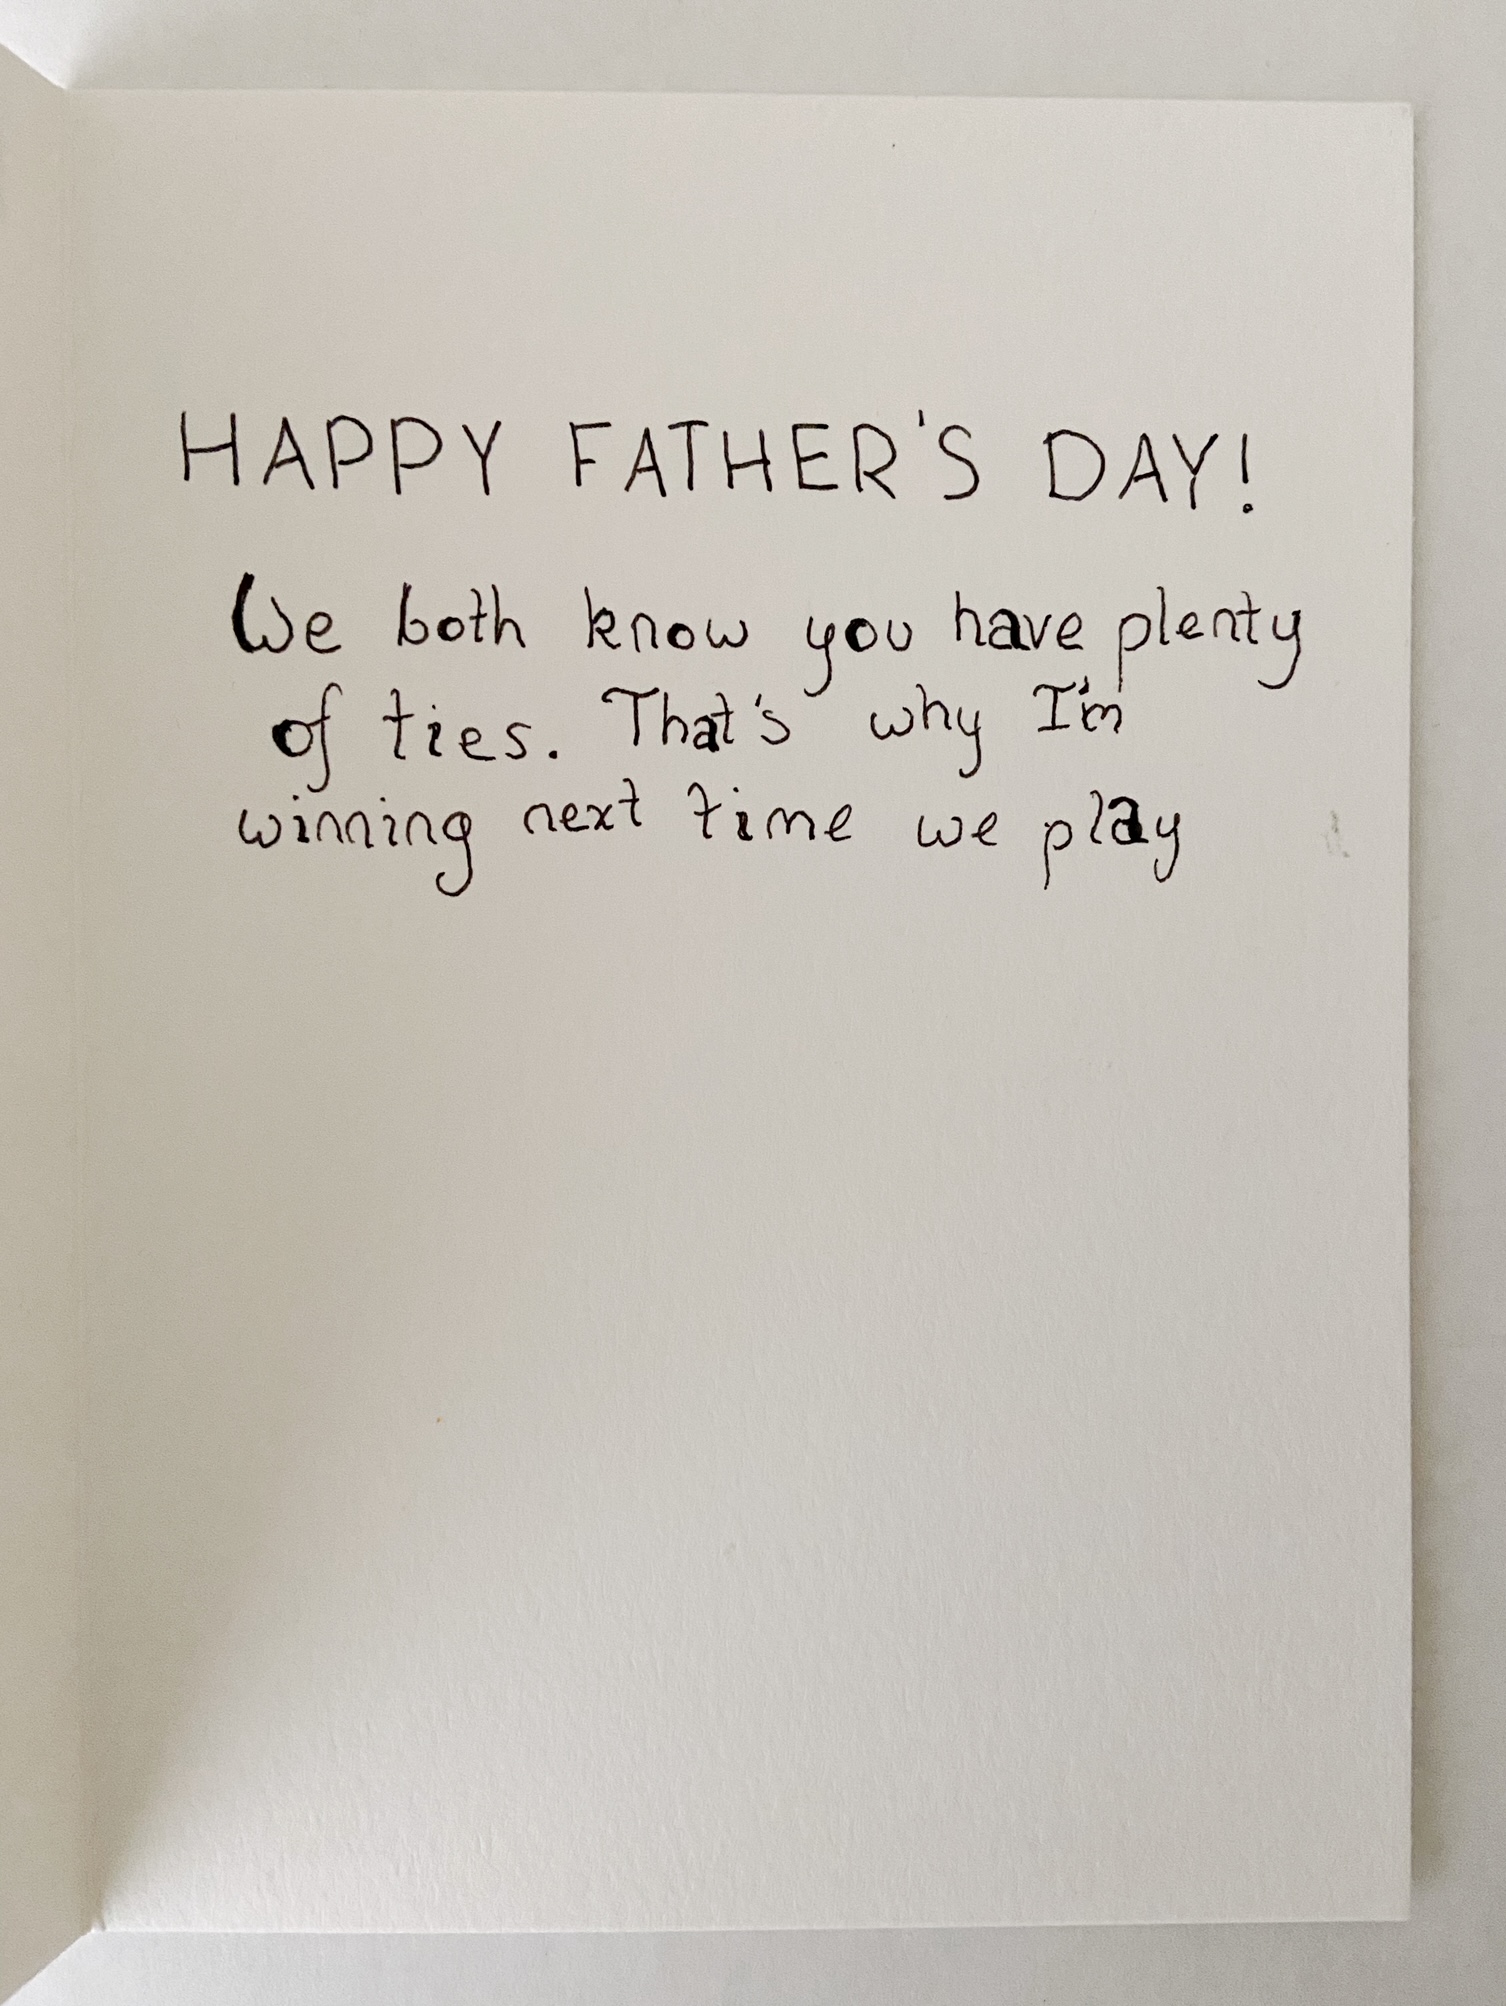 HAPPY FATHER'S DAY!
We both know you have plenty
of ties. That's why I'm
winning next time we play